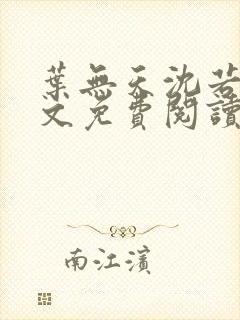 葉無天沈若
文免費閱讀
南江濱